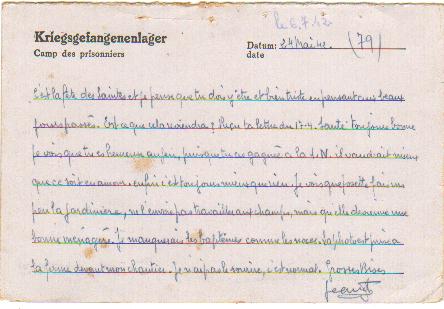 le 6.7.42
Kriegsgefangenenlager
Camp des prisonniers
Datum: 24 Mai 42. (79)
date
C'est la fête des Saintes et je pense que tu dois y être et bien triste en pensant aux beaux
jours passés. Est ce que cela reviendra? Reçu ta lettre du 17-4. Santé toujours bonne
je vois que tu es heureuse au jeu, puisque tu as gagné a la L.N. il vaudrait mieux
que ce soit en amour. enfin c'est toujours mieux que rien. Je vois que fait
peu la jardinière, ne l'envoi pas travailler aux champs, mais qu'elle devienne une
bonne ménagère. Je manquerais les baptêmes comme les noces. La photo est prise a
la ferme devant mon chantier. Je n'ai pas le sourire, c'est normal. Grosses Bises